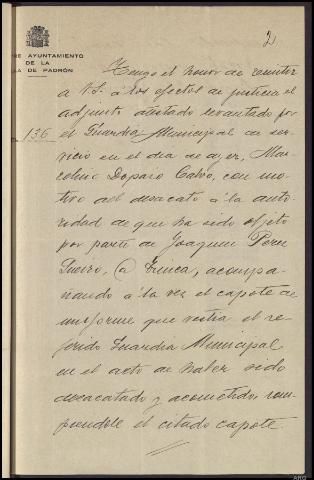 2
RE AYUNTAMIENTO
DE LA
LA DE PADRÓN
136
Tengo el honor de remitir
a V.S. á los efectos de justicia el
adjunto atestado levantado por
el Guardia Municipal de ser-
vicio en el dia de ayer, Mar-
celino Calvo, con mo-
tivo del desacato á la auto-
ridad de que ha sido objeto
por parte de Joaquin Perez
(a) acompa-
ñando á la vez el capote de
uniforme que vestia el re-
ferido Guardia Municipal
en el acto de haber sido
desacatado y acometido, rom-
piendole el citado capote.